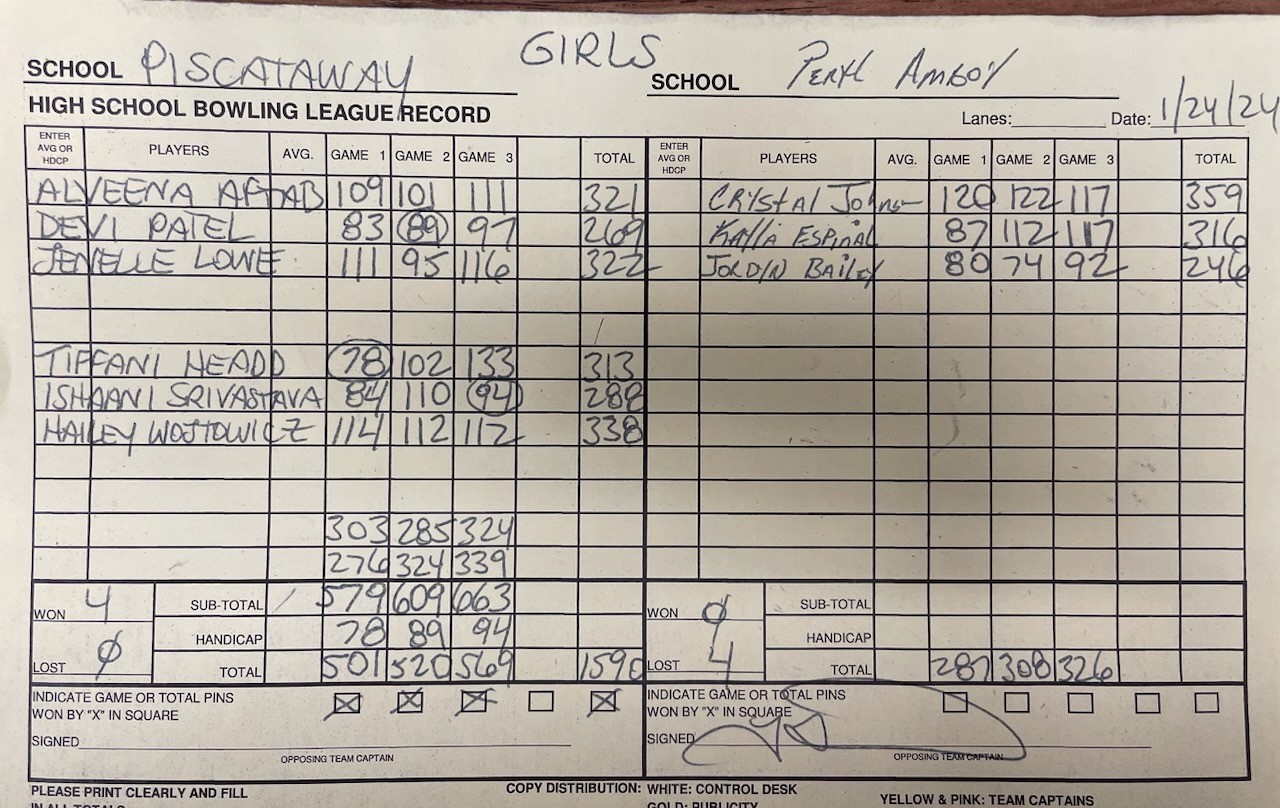 GIRLS
SCHOOL PISCATAWAY SCHOOL Perth Amboy
HIGH SCHOOL BOWLING LEAGUE RECORD Lanes: Date: 1/24/24
ENTER AVG OR HDCP PLAYERS AVG. GAME 1 GAME 2 GAME 3 TOTAL ENTER AVG OR HDCP PLAYERS AVG. GAME 1 GAME 2 GAME 3 TOTAL
ALVEENA AFTAB 109 101 111 321 CRYstal Johnson 120 122 117 359
DEVI PATEL 83 89 97 269 Kaylia ESPINAL 87 112 117 316
JENELLE LOWE 111 95 116 322 JORDIN BAILEY 80 74 92 246
TIFFANI HEADD 78 102 133 313
ISHAANI SRIVASTAVA 84 110 94 288
HAILEY WOJTOWICZ 114 112 112 338
303 285 324
276 324 339
WON 4 SUB-TOTAL 579 609 663 WON 0 SUB-TOTAL
HANDICAP 78 89 94 HANDICAP
LOST 0 TOTAL 501 520 569 1590 LOST 4 TOTAL 287 308 326
INDICATE GAME OR TOTAL PINS INDICATE GAME OR TOTAL PINS
WON BY "X" IN SQUARE WON BY "X" IN SQUARE
SIGNED SIGNED
OPPOSING TEAM CAPTAIN OPPOSING TEAM CAPTAIN
PLEASE PRINT CLEARLY AND FILL COPY DISTRIBUTION: WHITE: CONTROL DESK YELLOW & PINK: TEAM CAPTAINS
IN ALL TOTALS GOLD: PUBLICITY